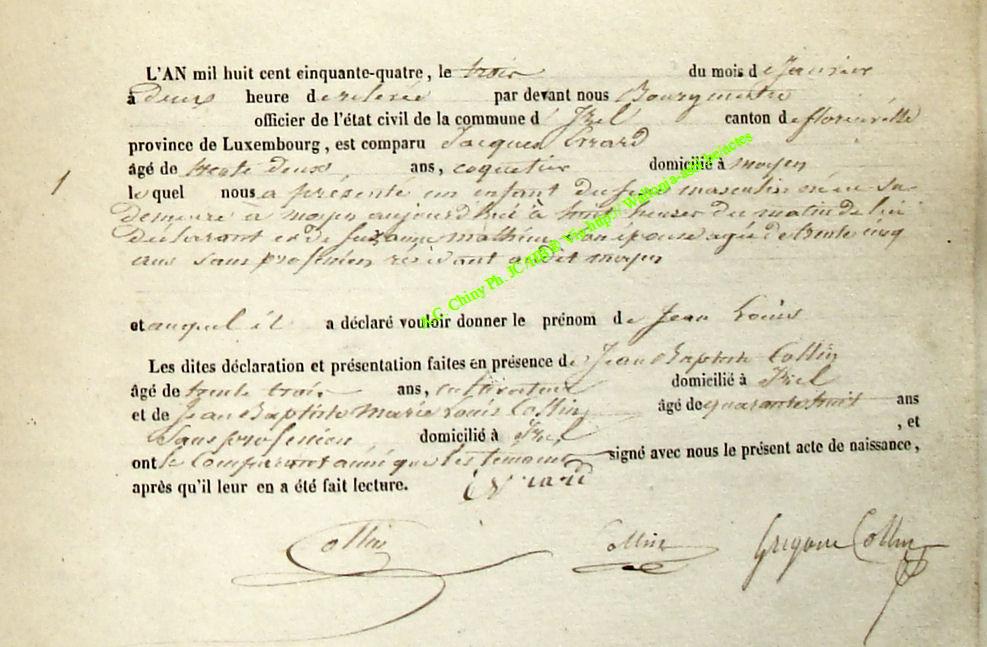 L'AN mil huit cent cinquante-quatre, le trois du mois de Janvier
à deux heure de relevée par devant nous Bourgmestre
officier de l'état civil de la commune d' Izel canton de florenville
province de Luxembourg, est comparu Jacques Errard
âgé de trente deux ans, coquetier domicilié à moyen
1 lequel nous a présenté un enfant du sexe masculin né en sa
demeure à moyen aujourd'hui à huit heures du matin de lui
déclarant et de Suzanne mathieu son épouse agée de trente cinq
ans sans profession résidant audit moyen
et auquel il a déclaré vouloir donner le prénom de Jean Louis
Les dites déclaration et présentation faites en présence de Jean Baptiste Collin
âgé de trente trois ans, cultivateur domicilié à Izel
et de Jean Baptiste Marie Louis Collin âgé de quarante huit ans
sans profession, domicilié à Izel, et
ont le Comparant ainsi que les témoins signé avec nous le présent acte de naissance,
après qu'il leur en a été fait lecture. Errard
Collin Collin Grégoire Collin
A.G. Chiny Ph. JC